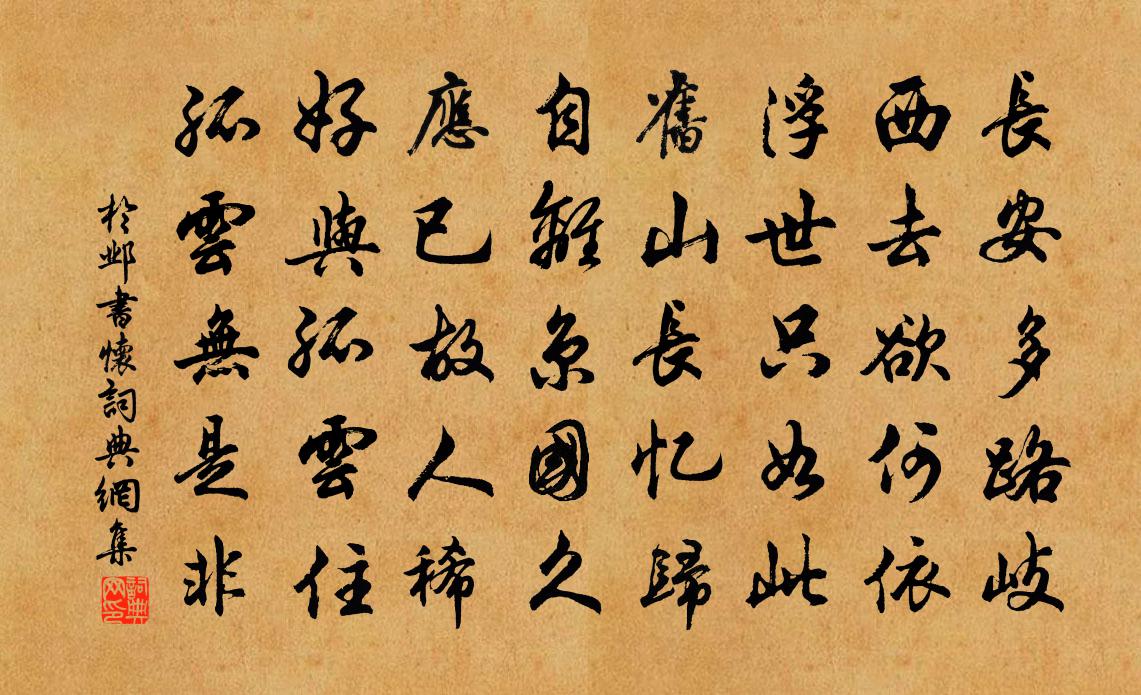 長安多路岐
西去欲何依
浮世只如此
舊山長忆歸
自離京國久
應已故人稀
好與孤雲住
孤雲無是非
於邺書懷詞典網集
詞典网印